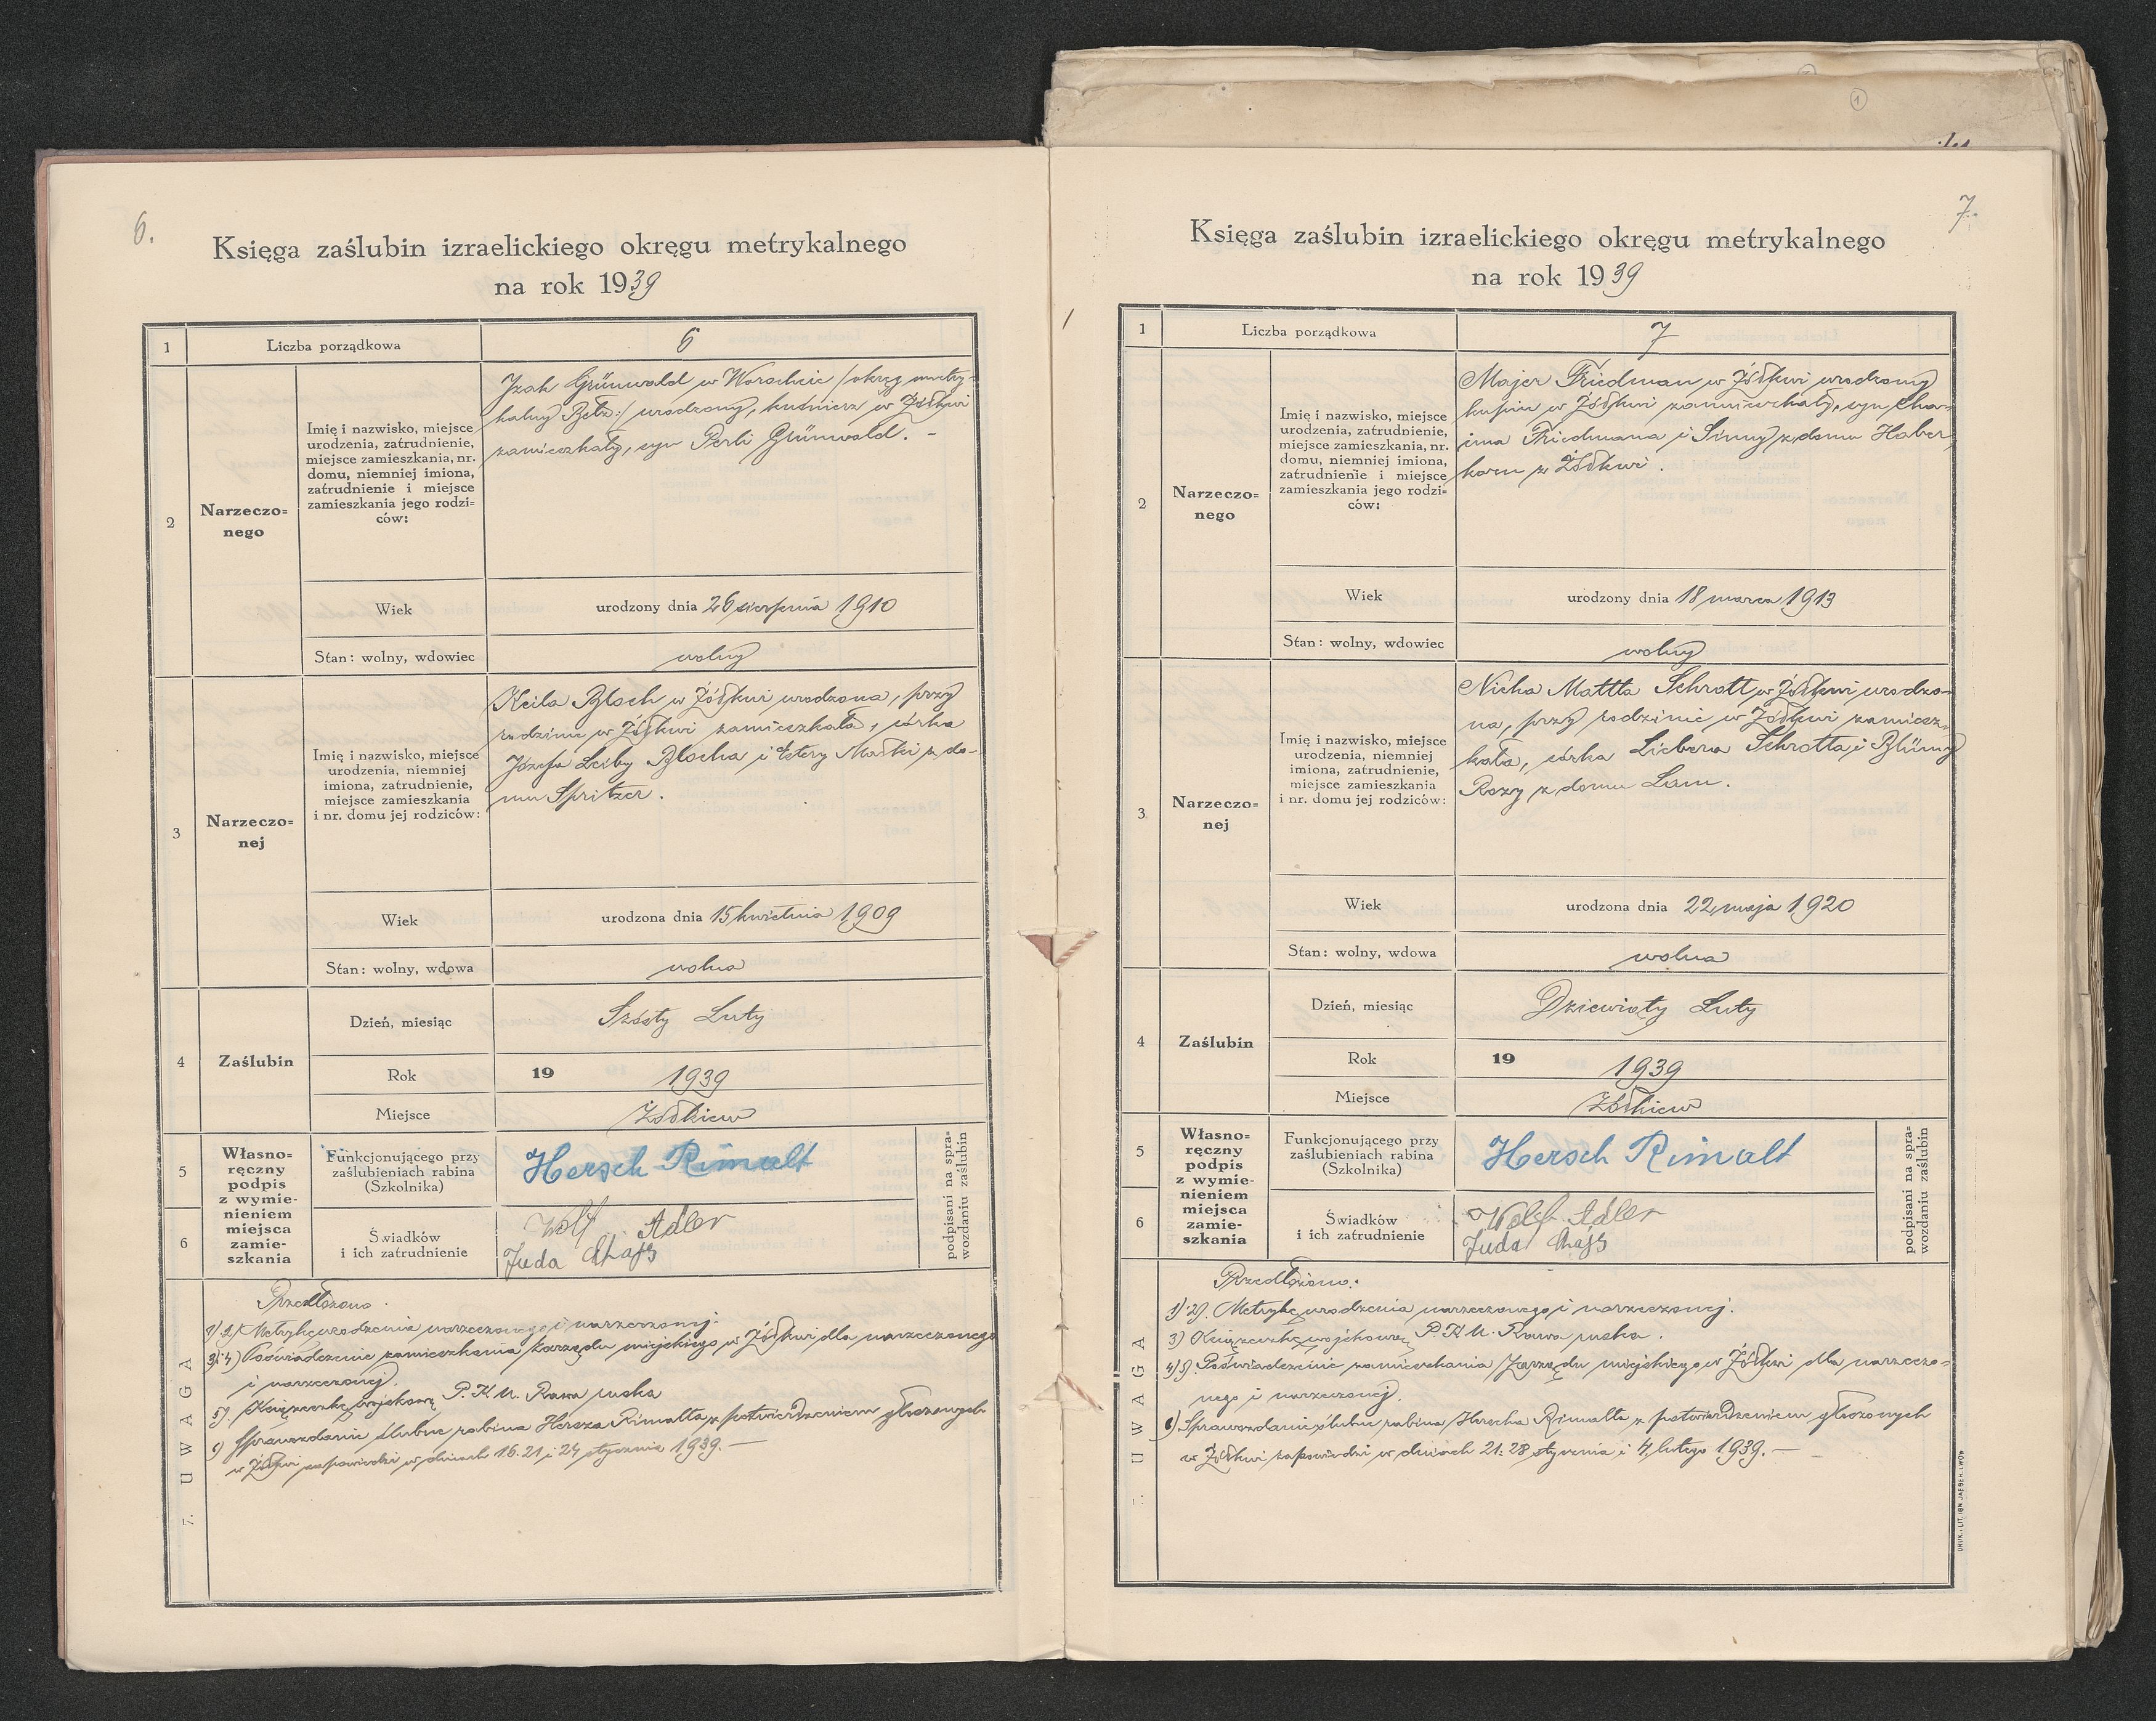 6.
Księga zaślubin izraelickiego okręgu metrykalnego
na rok 1939
1
Liczba porządkowa
6
2
Narzeczo=
nego
Imię i nazwisko, miejsce
urodzenia, zatrudnienie,
miejsce zamieszkania, nr.
domu, niemniej imiona,
zatrudnienie i miejsce
zamieszkania jego rodzi-
ców:
Izak Grünwald w Worochcie /okręg metry-
kalny Bełz:/ urodzony, kuśnierz w Żółkwi
zamieszkały, syn Perli Grünwald. -
Wiek
urodzony dnia 26 sierpnia 1910
Stan: wolny, wdowiec
wolny
3
Narzeczo=
nej
Imię i nazwisko, miejsce
urodzenia, niemniej
imiona, zatrudnienie,
miejsce zamieszkania
i nr. domu jej rodziców:
Keila Błoch w Żółkwi urodzona, przy
rodzinie w Żółkwi zamieszkała, córka
Józefa Leiby Błocha i Estery Małki z do-
mu Spritzer.
Wiek
urodzona dnia 15 kwietnia 1909
Stan: wolny, wdowa
wolna
4
Zaślubin
Dzień, miesiąc
Szósty Luty
Rok
19 1939
Miejsce
Żółkiew
5
6
Własno=
ręczny
podpis
z wymie-
nieniem
miejsca
zamie-
szkania
Funkcjonującego przy
zaślubieniach rabina
(Szkolnika)
Hersch Rimalt
Świadków
i ich zatrudnienie
Wolf Adler
Juda Chajs
podpisani na spra-
wozdaniu zaślubin
7. UWAGA
Przedłożono.
1) 2) Metrykę urodzenia narzeczonego i narzeczonej.
3) i 4) Poświadczenie zamieszkania Zarządu miejskiego w Żółkwi dla narzeczonego
i narzeczonej.
5) Książeczkę wojskową P.K.U. Rawa ruska
6) Sprawozdanie ślubne rabina Hersza Rimalta z potwierdzeniem głoszonych
w Żółkwi zapowiedzi w dniach 16. 21 i 24 stycznia 1939. —
7.
Księga zaślubin izraelickiego okręgu metrykalnego
na rok 1939
1
Liczba porządkowa
7
2
Narzeczo=
nego
Imię i nazwisko, miejsce
urodzenia, zatrudnienie,
miejsce zamieszkania, nr.
domu, niemniej imiona,
zatrudnienie i miejsce
zamieszkania jego rodzi=
ców:
Majer Friedman w Żółkwi urodzony
kupiec w Żółkwi zamieszkały, syn Cha-
ima Friedmana i Simny z domu Haber-
korn z Żółkwi.
Wiek
urodzony dnia 18 marca 1913
Stan: wolny, wdowiec
wolny
3
Narzeczo=
nej
Imię i nazwisko, miejsce
urodzenia, niemniej
imiona, zatrudnienie,
miejsce zamieszkania
i nr. domu jej rodziców:
Nicha Mattta Schrott w Żółkwi urodzo-
na, przy rodzinie w Żółkwi zamiesz-
kała, córka Liebera Schrotta i Blümy
Rozy z domu Lam.
Wiek
urodzona dnia 22 maja 1920
Stan: wolny, wdowa
wolna
4
Zaślubin
Dzień, miesiąc
Dziewiąty Luty
Rok
19 1939
Miejsce
Żółkiew
5
6
Własno=
ręczny
podpis
z wymie-
nieniem
miejsca
zamie-
szkania
Funkcjonującego przy
zaślubieniach rabina
(Szkolnika)
Hersch Rimalt
Świadków
i ich zatrudnienie
Wolf Adler
Juda Chajs
podpisani na spra-
wozdaniu zaślubin
7. UWAGA
Przedłożono:
1) 2). Metrykę urodzenia narzeczonego i narzeczonej.
3) Książeczkę wojskową P.K.U. Rawa ruska.
4) 5). Poświadczenie zamieszkania Zarządu miejskiego w Żółkwi dla narzeczo-
nego i narzeczonej.
6) Sprawozdanie ślubne rabina Herscha Rimalta z potwierdzeniem głoszonych
w Żółkwi zapowiedzi w dniach 21. 28 stycznia i 4 lutego 1939. —
DRUK.-LIT. IGN. JAEGER, LWÓW